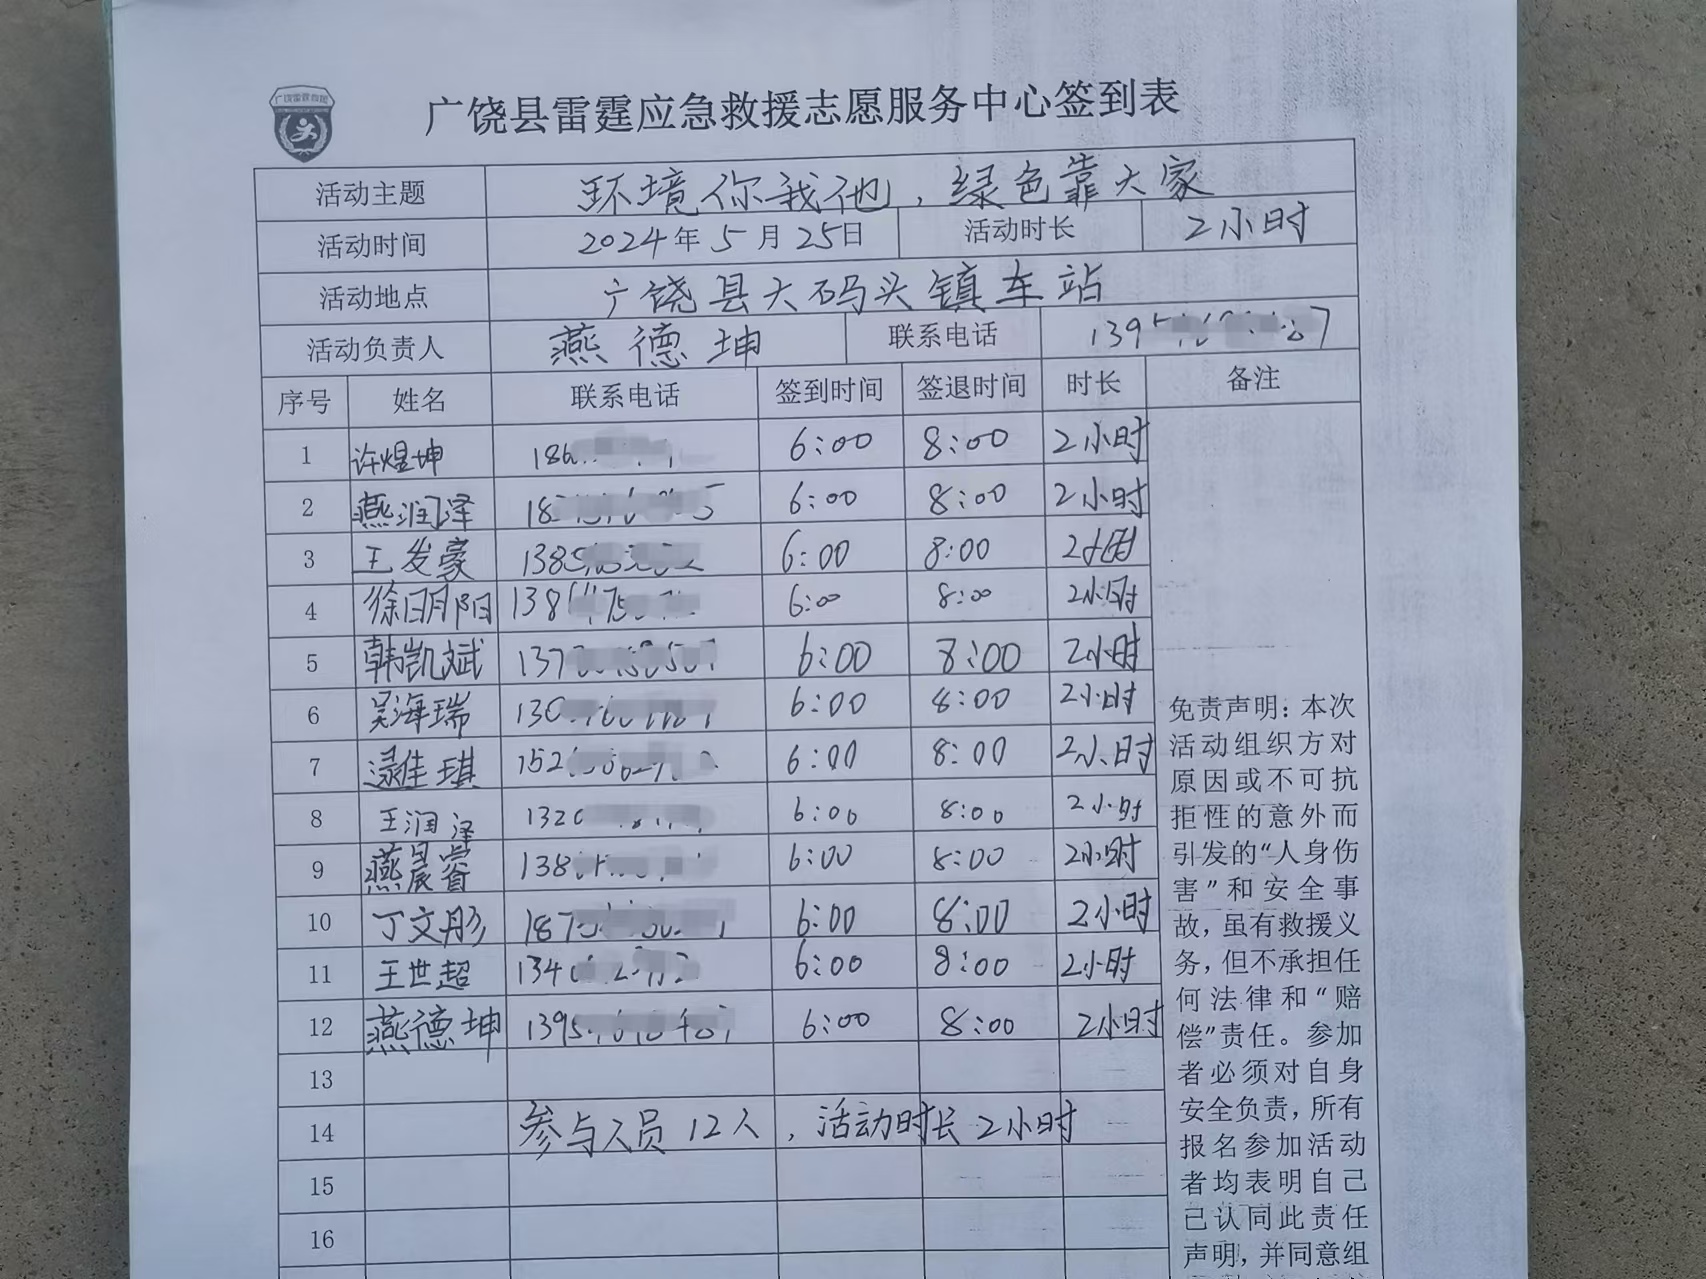 广饶雷霆救援
广饶县雷霆应急救援志愿服务中心签到表
活动主题 环境你我他，绿色靠大家
活动时间 2024年5月25日 活动时长 2小时
活动地点 广饶县大码头镇车站
活动负责人 燕德坤 联系电话 139
序号 姓名 联系电话 签到时间 签退时间 时长 备注
1 许煜坤 6:00 8:00 2小时
2 燕润泽 6:00 8:00 2小时
3 王发豪 138 6:00 8:00 2小时
4 徐明阳 138 6:00 8:00 2小时
5 韩凯斌 137 6:00 8:00 2小时
6 吴海瑞 130 6:00 8:00 2小时
7 佳琪 152 6:00 8:00 2小时
8 王润泽 132 6:00 8:00 2小时
9 燕晨睿 138 6:00 8:00 2小时
10 丁文彤 187 6:00 8:00 2小时
11 王世超 134 6:00 8:00 2小时
12 燕德坤 1395 6:00 8:00 2小时
13
14 参与人员12人，活动时长2小时
15
16
免责声明：本次
活动组织方对
原因或不可抗
拒性的意外而
引发的“人身伤
害”和安全事
故，虽有救援义
务，但不承担任
何法律和“赔
偿”责任。参加
者必须对自身
安全负责，所有
报名参加活动
者均表明自己
已认同此责任
声明，并同意组